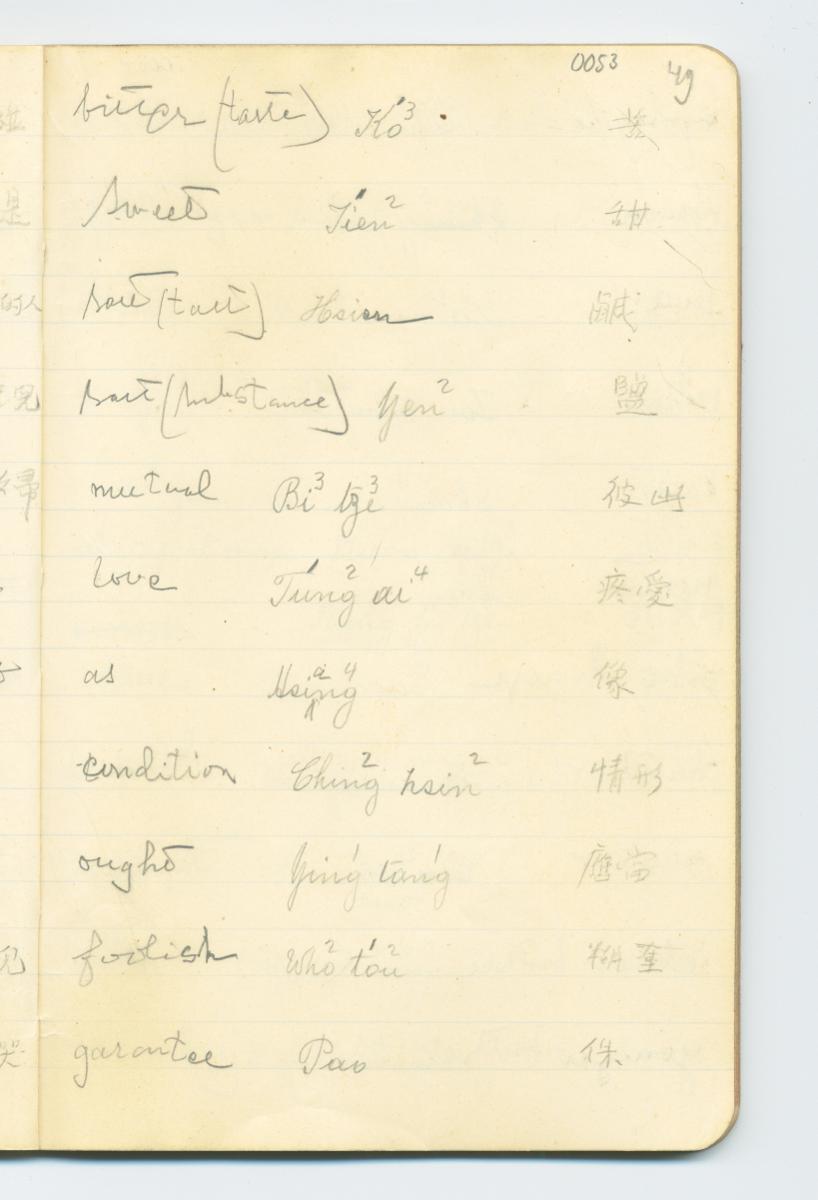 0053 49
bitter (taste) K'o3 苦
Sweet T'ien2 甜
salt (taste) Hsien 鹹
salt (substance) Yen2 鹽
mutual Bi3 tze3 彼此
love T'ung2 ai4 疼愛
as Hsiang4 像
condition Ching2 hsin2 情形
ought Ying1 tang1 應當
foolish Who2 t'ou2 糊塗
garantee Pao 保